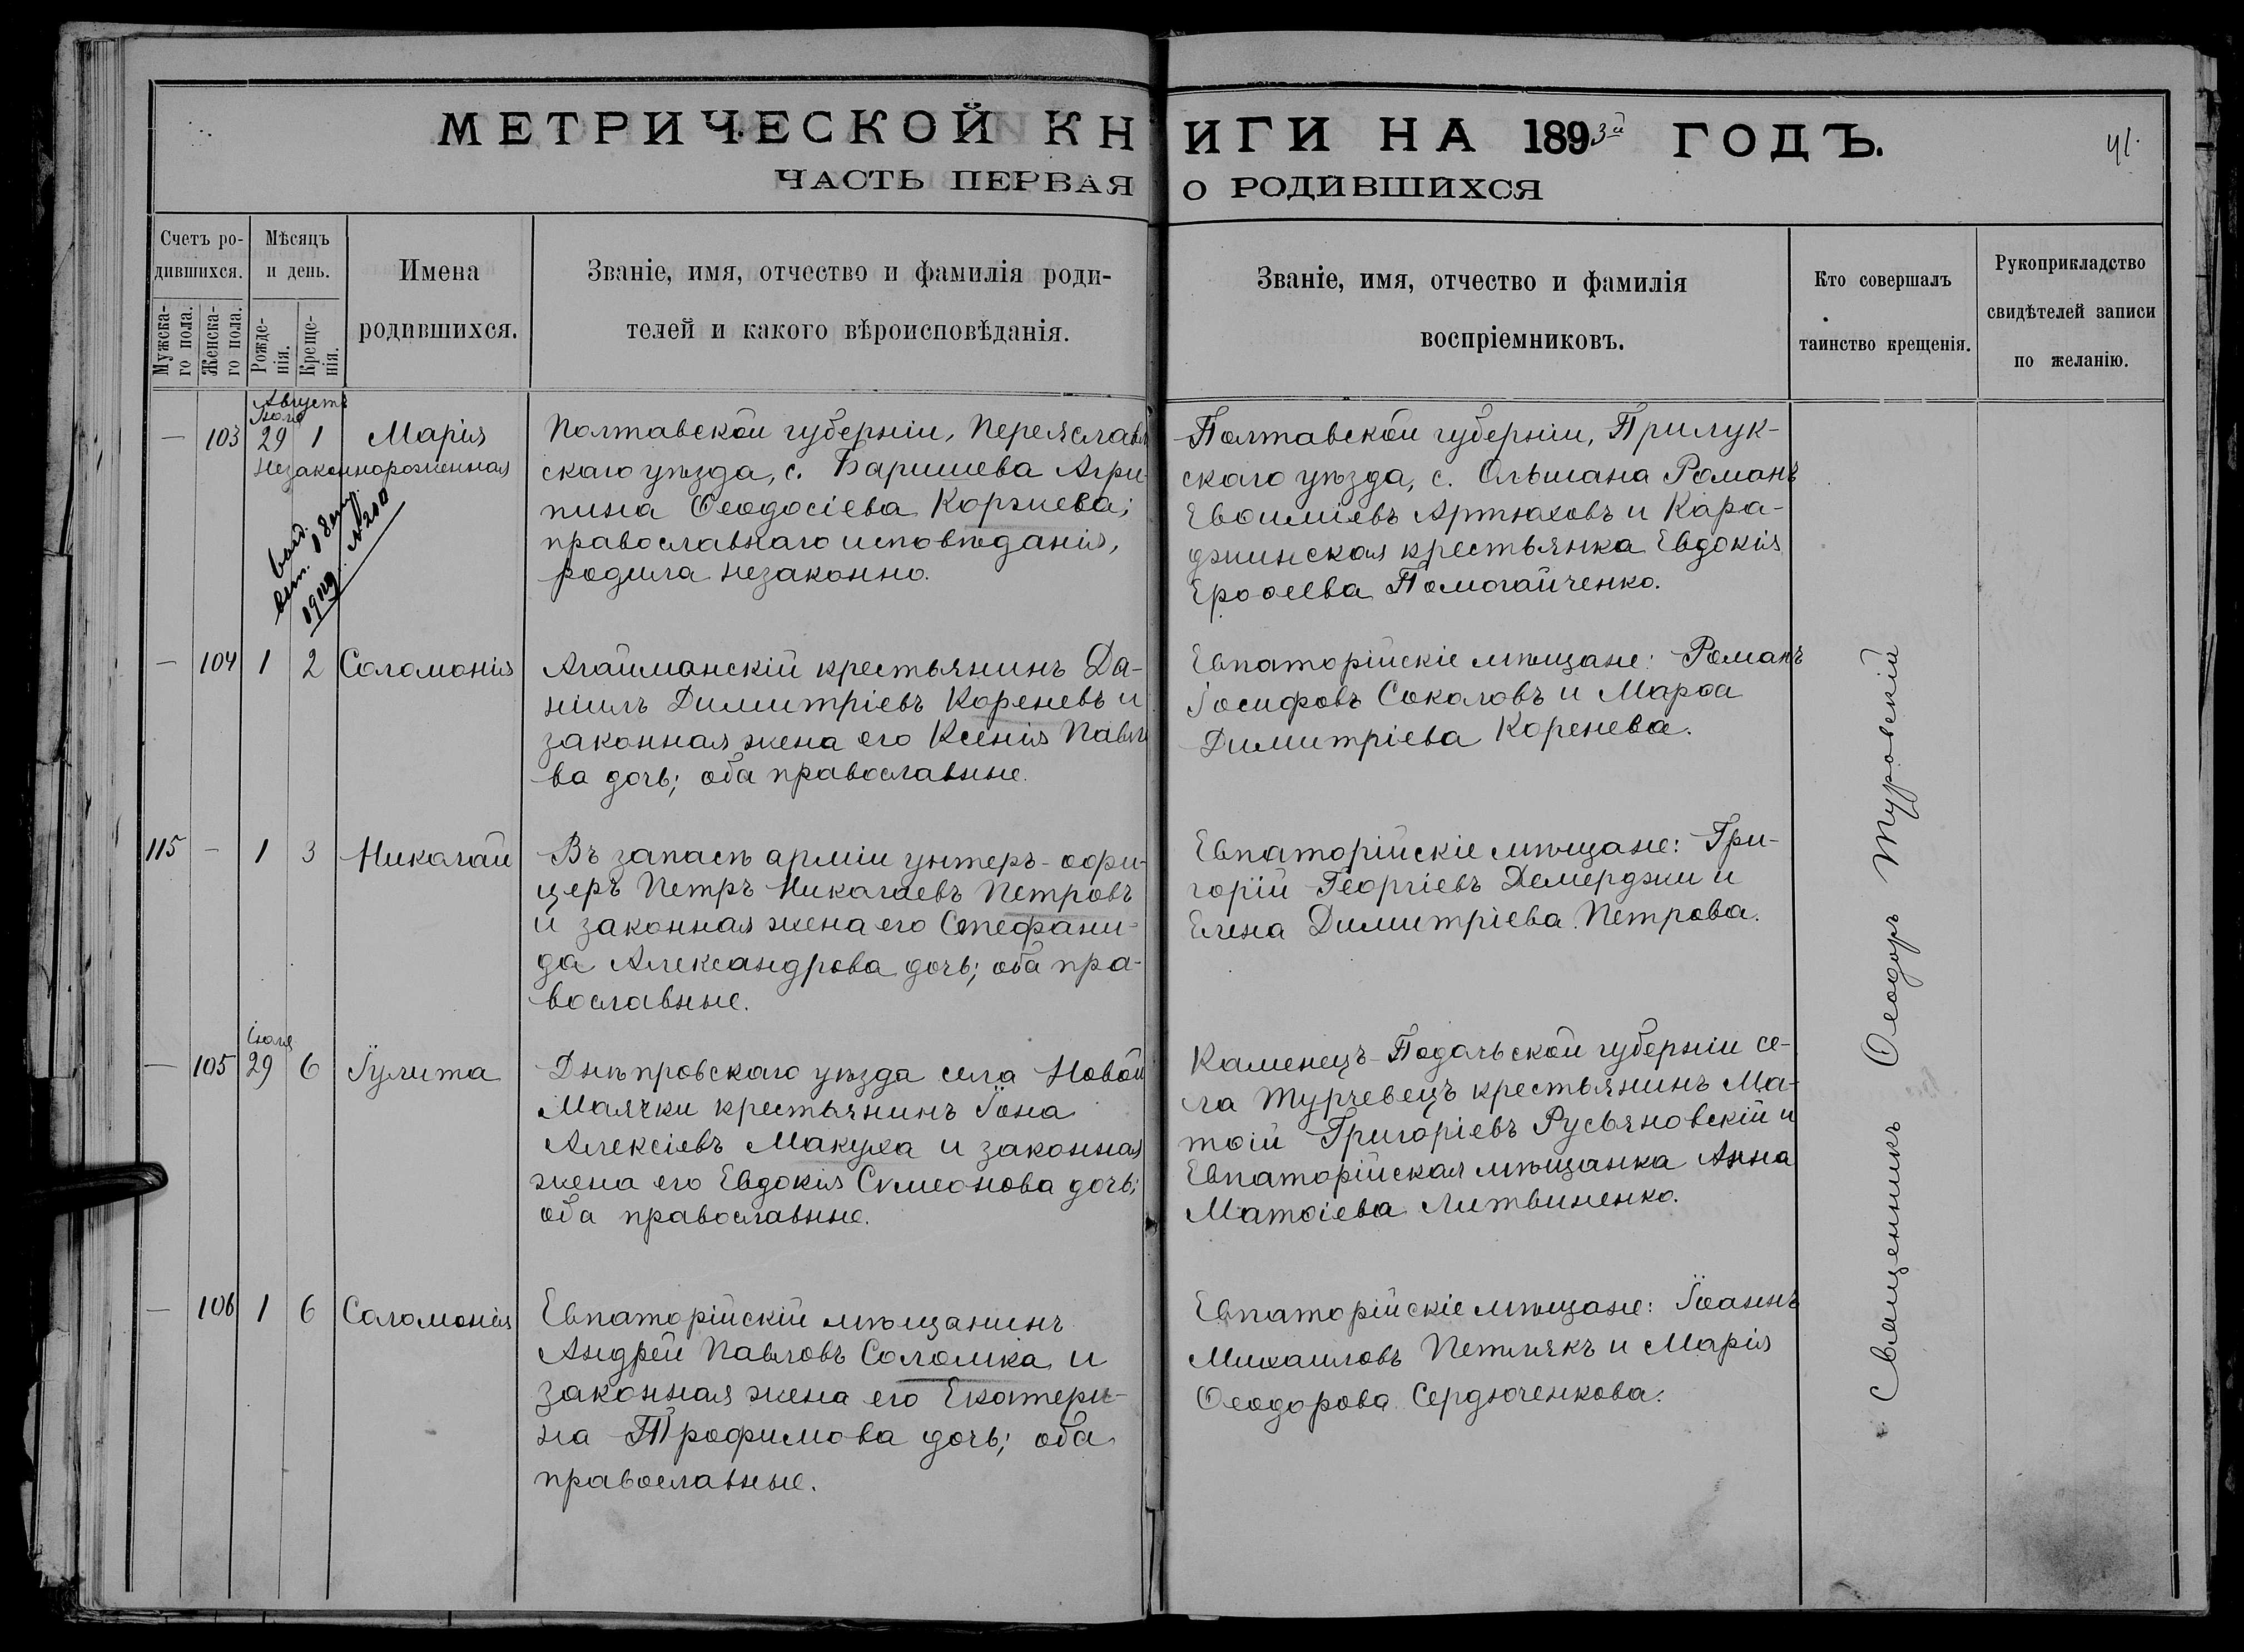 МЕТРИЧЕСКОЙ КНИГИ НА 1893й ГОДЪ.
41.
ЧАСТЬ ПЕРВАЯ О РОДИВШИХСЯ
Счетъ ро-
дившихся.
Мужска-
го пола.
Женска-
го пола.
Мѣсяцъ
и день.
Рожде-
нія.
Креще-
нія.
Имена
родившихся.
Званіе, имя, отчество и фамилія роди-
телей и какого вѣроисповѣданія.
Званіе, имя, отчество и фамилія
воспріемниковъ.
Кто совершалъ
таинство крещенія.
Рукоприкладство
свидѣтелей записи
по желанію.
Августъ
Іюля
— 103 29 1 Марія
незаконнорожденная
№ 200
Полтавской губерніи, Переяслав
скаго уѣзда, с. Баришева Агри-
пина Ѳеодосіева Коржиева;
православнаго исповѣданія,
родила незаконно.
Полтавской губерніи, Прилук-
скаго уѣзда, с. Ольшана Романъ
Евѳиміевъ Артюховъ и Кара-
джинская крестьянка Евдокія
Ероѳеева Помогайченко.
— 104 1 2 Соломонія
Агайманскій крестьянинъ Да-
ніилъ Димитріевъ Кореневъ и
законная жена его Ксенія Павло
ва дочь; оба православные.
Евпаторійскіе мѣщане: Романъ
Іосифовъ Соколовъ и Марѳа
Димитріева Коренева.
115 — 1 3 Николай
Въ запасѣ арміи унтеръ-офи-
церъ Петръ Николаевъ Петровъ
и законная жена его Стефани-
да Александрова дочь; оба пра-
вославные.
Евпаторійскіе мѣщане: Гри-
горій Георгіевъ Демерджи и
Елена Димитріева Петрова.
іюля
— 105 29 6 Іулита
Днѣпровскаго уѣзда села Новой
Маячки крестьянинъ Іона
Алексіевъ Макуха и законная
жена его Евдокія Сѵмеонова дочь;
оба православные.
Каменецъ-Подольской губерніи се-
ла Турчевецъ крестьянинъ Ма-
тѳій Григоріевъ Русьяновскій и
Евпаторійская мѣщанка Анна
Матѳіева Литвиненко.
— 106 1 6 Соломонія
Евпаторійскій мѣщанинъ
Андрей Павловъ Соломка и
законная жена его Екатери-
на Трофимова дочь; оба
православные.
Евпаторійскіе мѣщане: Іоаннъ
Михаиловъ Петлякъ и Марія
Ѳеодорова Сердюченкова.
Священникъ Ѳеодоръ Туровскій